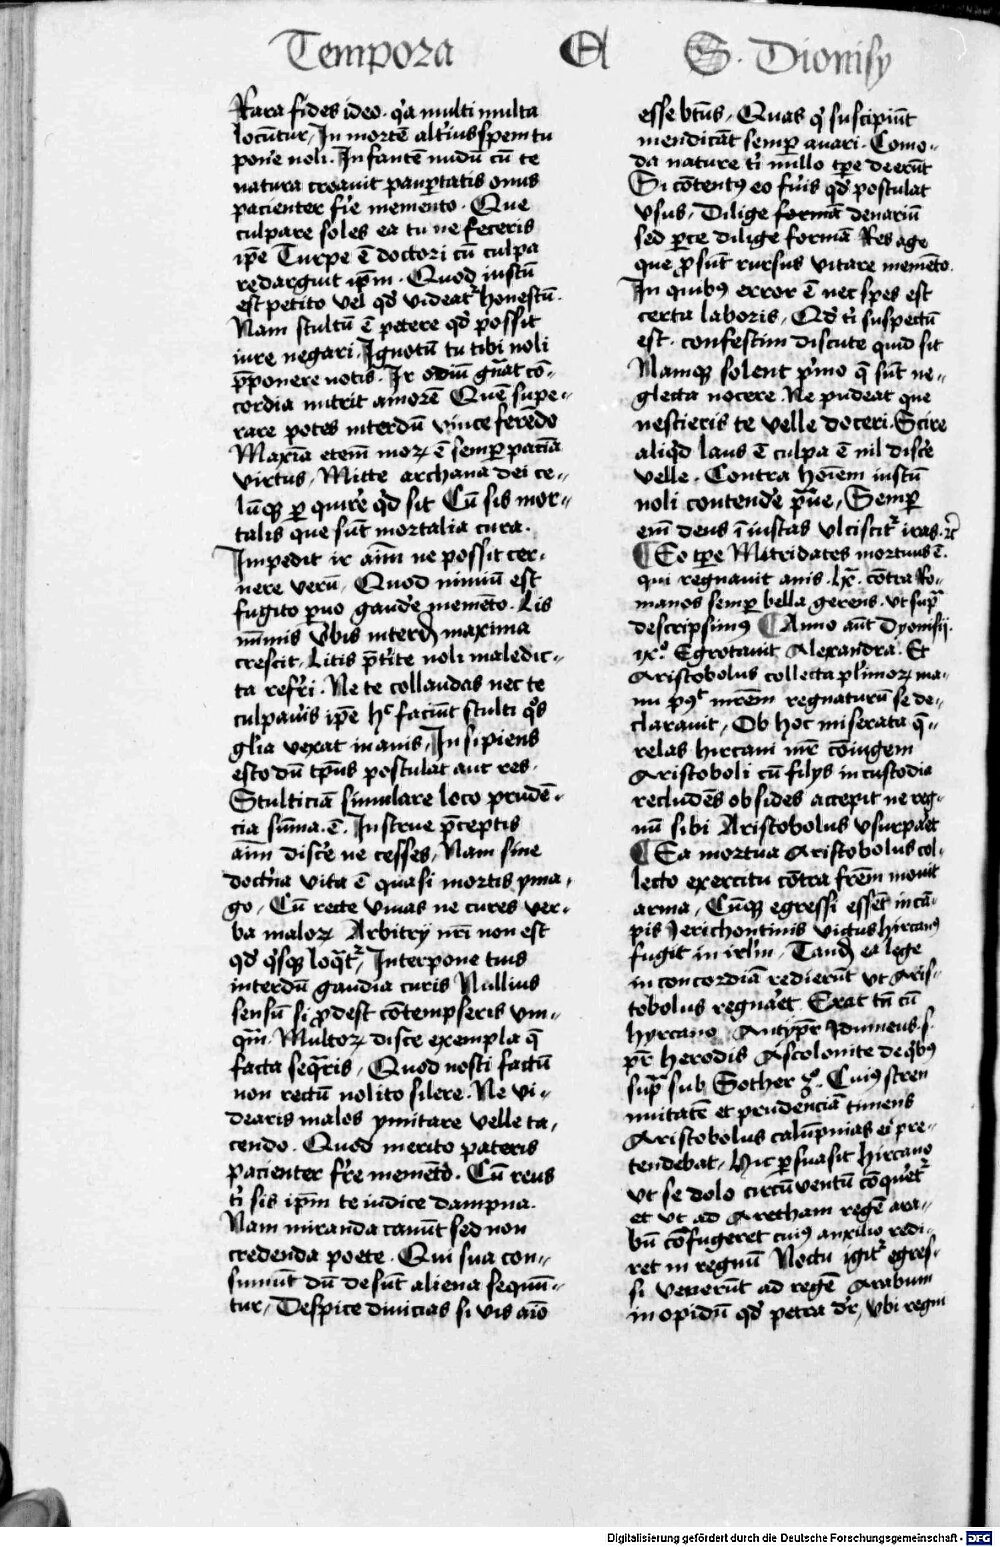 Tempora Et S. Dionisy
Rara fides ideo · q̇a multi multa
locūtur, In mortē alt'ius spem tu
pone noli. Infantē nudū cū te
natura creavit paup̄tatis onus
pacienter fr̄e memento. Que
culpare soles ea tu ne feceris
ip̄e Turpe ē doctori cū culpa
redarguit ip̄m. Quod iustū
est petito vel qd̄ videat᷑ honestū.
Nam stultū ē petere qd̄ possit
iure negari. Ignotū tu tibi noli
p̄ponere notis. Ir odiū gn̄at cō-
cordia nutrit amorē Quē supe-
rare potes interdū vince ferēdo
Maxīa etem̄ moꝝ ē semp paciā
virtus, Mitte archana dei ce-
lūqꝫ per quir̄e qd̄ sit Cū sis mor-
talis que sūt mortalia cura.
Impedit ir aīm ne possit cer-
nere verū, Quod nimiū est
fugito p̄uo gaude memēto. Lis
mīmis v̄bis interdū maxima
crescit, Litis p̄tite noli maledic-
ta refr̄i. Ne te collaudas nec te
culpav̄is ip̄e hᶜ faciūt stulti qͦs
gl̄ia vexat inanis, Insipiens
esto dū tp̄us postulat aut res.
Stulticiā simulare loco prudē-
cia sūma ē. Instrue p̄ceptis
aīm disc̄e ne cesses, Nam sine
doctr̄ia vita ē quasi mortis yma-
go, Cū recte vivas ne cures ver-
ba maloꝝ Arbitrij nr̄i non est
qd̄ qͥsqꝫ loq̄t᷑, Interpone tuis
interdū gaudia curis Nullius
sensū si p̄dest cōtempseris vm-
qm̄. Multoꝝ disce exempla q̄
facta seqr̄is, Quod nosti factū
non rectū nolito silere. Ne vi-
dearis malos ymitare velle ta-
cendo. Quod merito pateris
pacienter fr̄re memēto. Cū reus
tͥ sis ip̄m te iudice dampna.
Nam miranda canūt sed non
credenda poete. Qui sua con-
sumūt dū desūt aliena sequū-
tur, Despice divicias si vis aīo
esse btūs, Quas qͥ suscipiūt
mendicāt semp avari. Como-
da nature tͥ nullo tp̄e deerūt
Si cōtentꝰ eo fu̇is qd̄ postulat
vsus, Dilige formā denariū
sed p̄ce dilige formā Res age
que p̄sūt rursus vitare memēto.
In quibꝰ error ē nec spes est
certa laboris, Qd̄ tͥ suspectū
est. confestim discute quid sit
Namqꝫ solent pͥmo q̄ sūt ne-
glecta nocere. Ne pudeat que
nescieris te velle doceri. Scire
aliqd̄ laus ē culpa ē nil disc̄e
velle. Contra hoīem iustū
noli contend̄e p̄ve, Semp
em̄ deus iīustas vlciscit᷑ iras. ⁊c
¶ Eo tp̄e Mitridates mortuus ē.
qui regnavit anis. lx. cōtra Ro-
manos semp bella gerens. ut supͣ
descripsimꝰ ¶ Anno aūt Dyonisij.
ix.ͦ Egrotavit Alexandra. Et
Aristobolus collecta plͥmoꝝ ma-
nu pꝰᵗ mr̄em regnaturū se de-
claravit, Ob hoc miserata q̄-
relas hircani mr̄ cōiugem
Aristoboli cū filijs in custodia
recludēs obsides accepit ne reg-
nū sibi Aristobolus vsurpar̄et
¶ Ea mortua Aristobolus col-
lecto exercitu cōtra fr̄em movit
arma, Cūqꝫ egressi essēt in cā-
pis Jerichontinis victus hircanꝰ
fugit in irlm̄, Tandē ea lege
in concordiā redierūt ut Aris-
tobolus regnar̄et. Erat tn̄ cū
hyrcano Antypr̄ Idumeus. s.
pr̄ Herodis Ascolonite de qͥbꝰ
supͣ sub Sother
Cuiꝰ stren
nuitatē et prudenciā timens
Aristobolus calūpnias ei pre-
tendebat, Hic p̄suasit hircano
ut se dolo circūventū cōquer̄et᷑
et ut ad Aretham regē ara-
bū cōfugeret cuiꝰ auxilio redi-
ret in regnū Noctu igit᷑ egres-
si venerūt ad regē Arabum
in opidū qd̄ petra dr̄, vbi regni
Digitalisierung gefördert durch die Deutsche Forschungsgemeinschaft - DFG